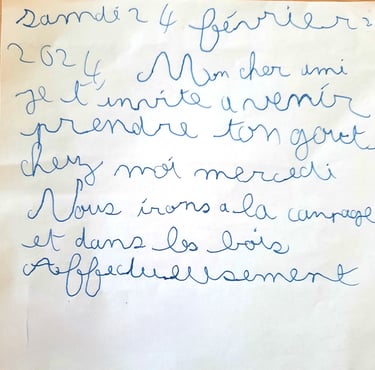 samdi 24 février 2
2024, Mon cher ami
Je t'invite a venir
prendre ton gout
chez moi mercedi
Nous irons a la canrage
et dans les bois
Affectueusement